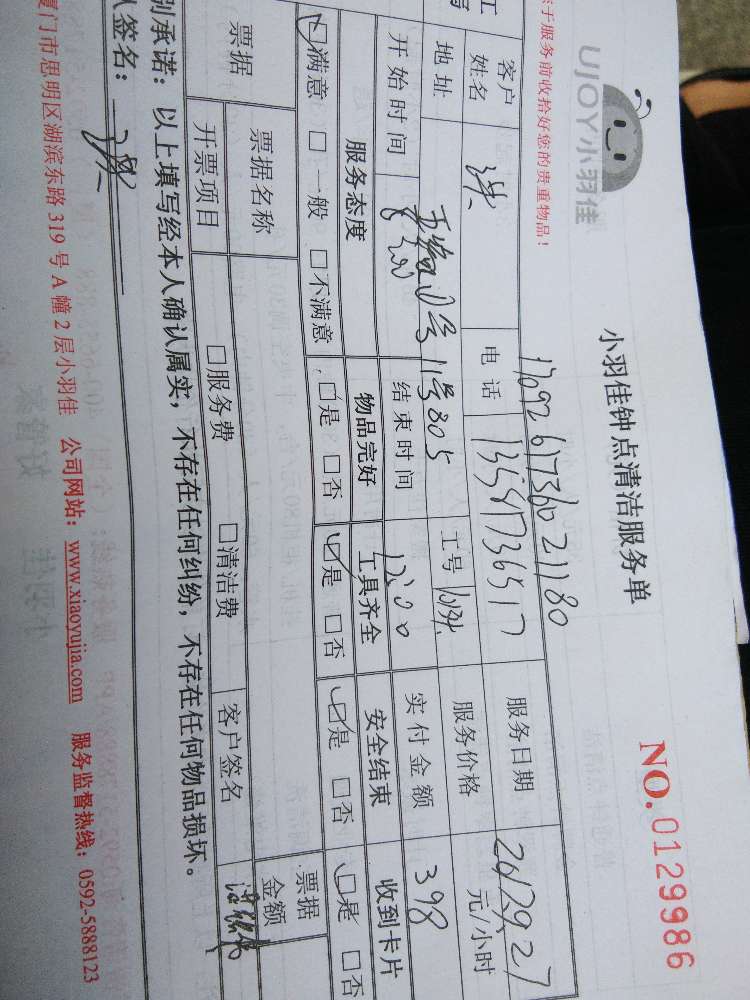 UJOY小羽佳
小羽佳钟点清洁服务单
NO.0129986
于服务前收拾好您的贵重物品！
1709261736021180
客户姓名 洪 电话 13587736517 服务日期
地址 11号805 工号 服务价格 元/小时
开始时间 结束时间 12:00 实付金额 398
服务态度 物品完好 工具齐全 安全结束 收到卡片
☑满意 □一般 □不满意 □是 □否 ☑是 □否 ☑是 □否 ☑是 □否
票据 票据名称 □服务费 □清洁费 票据金额
开票项目 客户签名
别承诺：以上填写经本人确认属实，不存在任何纠纷，不存在任何物品损坏。
人签名： 洪
厦门市思明区湖滨东路319号A幢2层小羽佳 公司网站：www.xiaoyujia.com 服务监督热线：0592-5888123